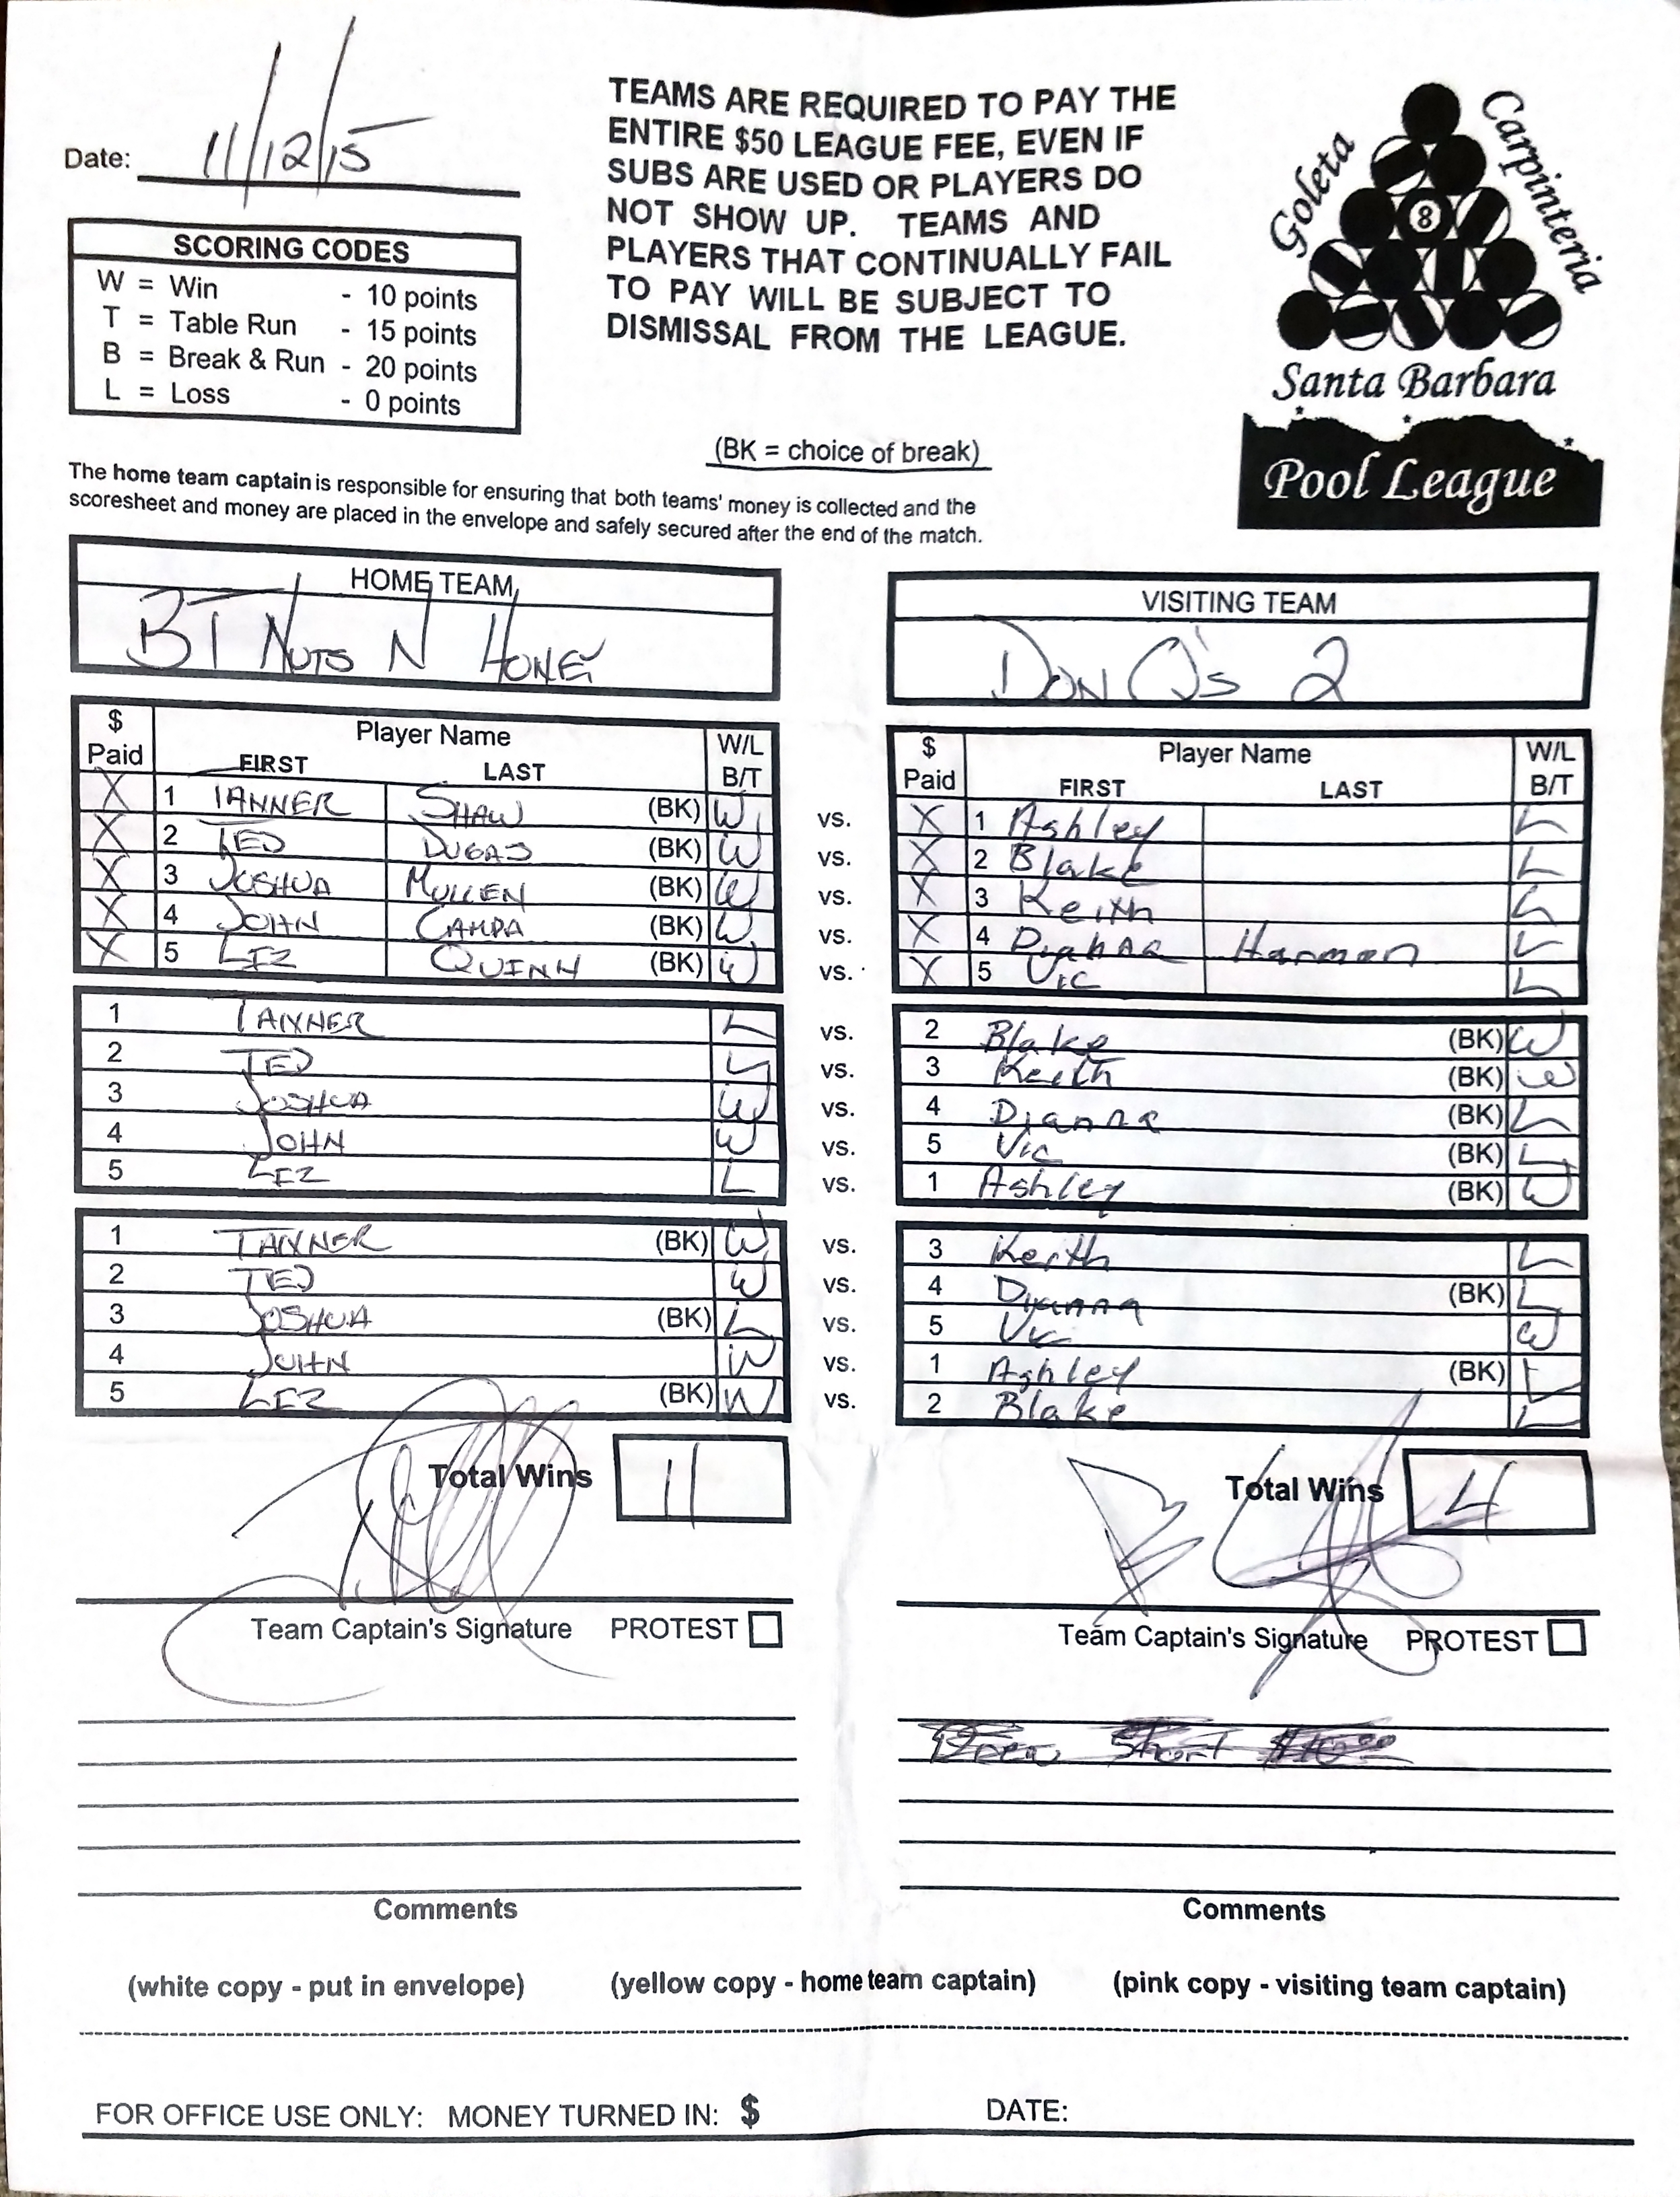 Date: 11/12/15
SCORING CODES
W = Win - 10 points
T = Table Run - 15 points
B = Break & Run - 20 points
L = Loss - 0 points
TEAMS ARE REQUIRED TO PAY THE
ENTIRE $50 LEAGUE FEE, EVEN IF
SUBS ARE USED OR PLAYERS DO
NOT SHOW UP. TEAMS AND
PLAYERS THAT CONTINUALLY FAIL
TO PAY WILL BE SUBJECT TO
DISMISSAL FROM THE LEAGUE.
Goleta
Carpinteria
8
Santa Barbara
Pool League
(BK = choice of break)
The home team captain is responsible for ensuring that both teams' money is collected and the
scoresheet and money are placed in the envelope and safely secured after the end of the match.
HOME TEAM
BT NUTS N HONEY
VISITING TEAM
DON Q'S 2
$ Paid Player Name W/L B/T
FIRST LAST
$ Paid Player Name W/L B/T
FIRST LAST
X 1 TANNER SHAW (BK) W vs. X 1 Ashley L
X 2 TED DUGAS (BK) W vs. X 2 Blake L
X 3 JOSHUA MULLEN (BK) W vs. X 3 Keith L
X 4 JOHN CAMPA (BK) W vs. X 4 Dianna Harmon L
X 5 LEZ QUINN (BK) W vs. X 5 Vic L
1 TANNER L vs. 2 Blake (BK) W
2 TED L vs. 3 Keith (BK) W
3 JOSHUA W vs. 4 Dianna (BK) L
4 JOHN W vs. 5 Vic (BK) L
5 LEZ L vs. 1 Ashley (BK) W
1 TANNER (BK) W vs. 3 Keith L
2 TED W vs. 4 Dianna (BK) L
3 JOSHUA (BK) L vs. 5 Vic W
4 JOHN W vs. 1 Ashley (BK) L
5 LEZ (BK) W vs. 2 Blake L
Total Wins 11
Total Wins 4
Team Captain's Signature PROTEST
Team Captain's Signature PROTEST
Short
Comments
Comments
(white copy - put in envelope) (yellow copy - home team captain) (pink copy - visiting team captain)
FOR OFFICE USE ONLY: MONEY TURNED IN: $ DATE: